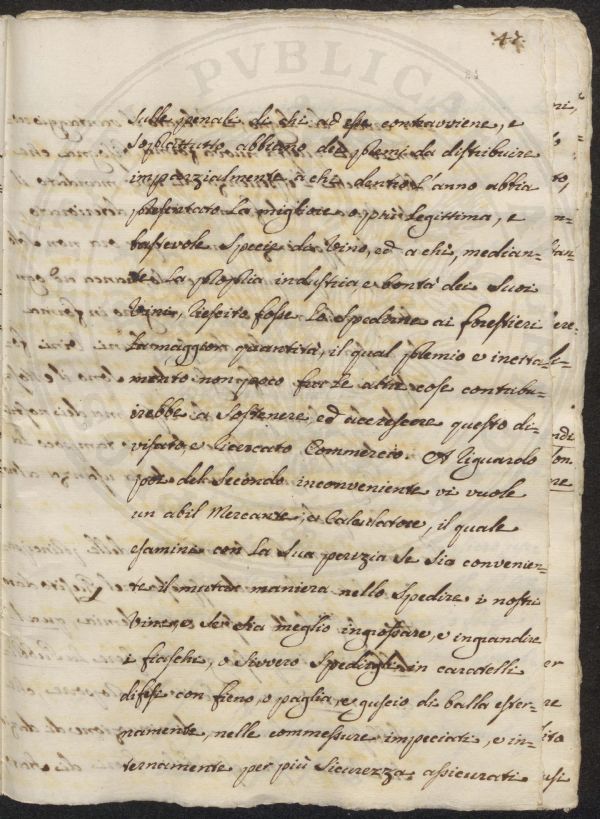 47.
sulle penali di chi ad esse contravviene, e
soprattutto abbiano dei premi da distribuire
imparzialmente a chi dentro l'anno abbia
presentato la migliore, o più legittima, e
bastevole specie di vino, ed a chi, median=
te la propria industria e bontà dei suoi
vini, riescito fosse lo spedirne ai forestieri
la maggior quantità, il qual premio e
mento non poco fra le altre cose contribu=
irebbe a sostenere, ed accrescere questo di=
visato, e ricercato Commercio. A riguardo
poi del secondo inconveniente vi vuole
un abil Mercante, e Calculatore, il quale
esamini con la sua perizia se sia convenien=
te il mutar maniera nello spedire i nostri
vini, e se sia meglio ingrossare, e ingrandire
i fiaschi, o sivvero spedirgli in caratelli
difesi con fieno, o paglia, e guscio di balla ester=
namente, nelle commessure impeciati, e in=
ternamente per più sicurezza assicurati
PVBLICA